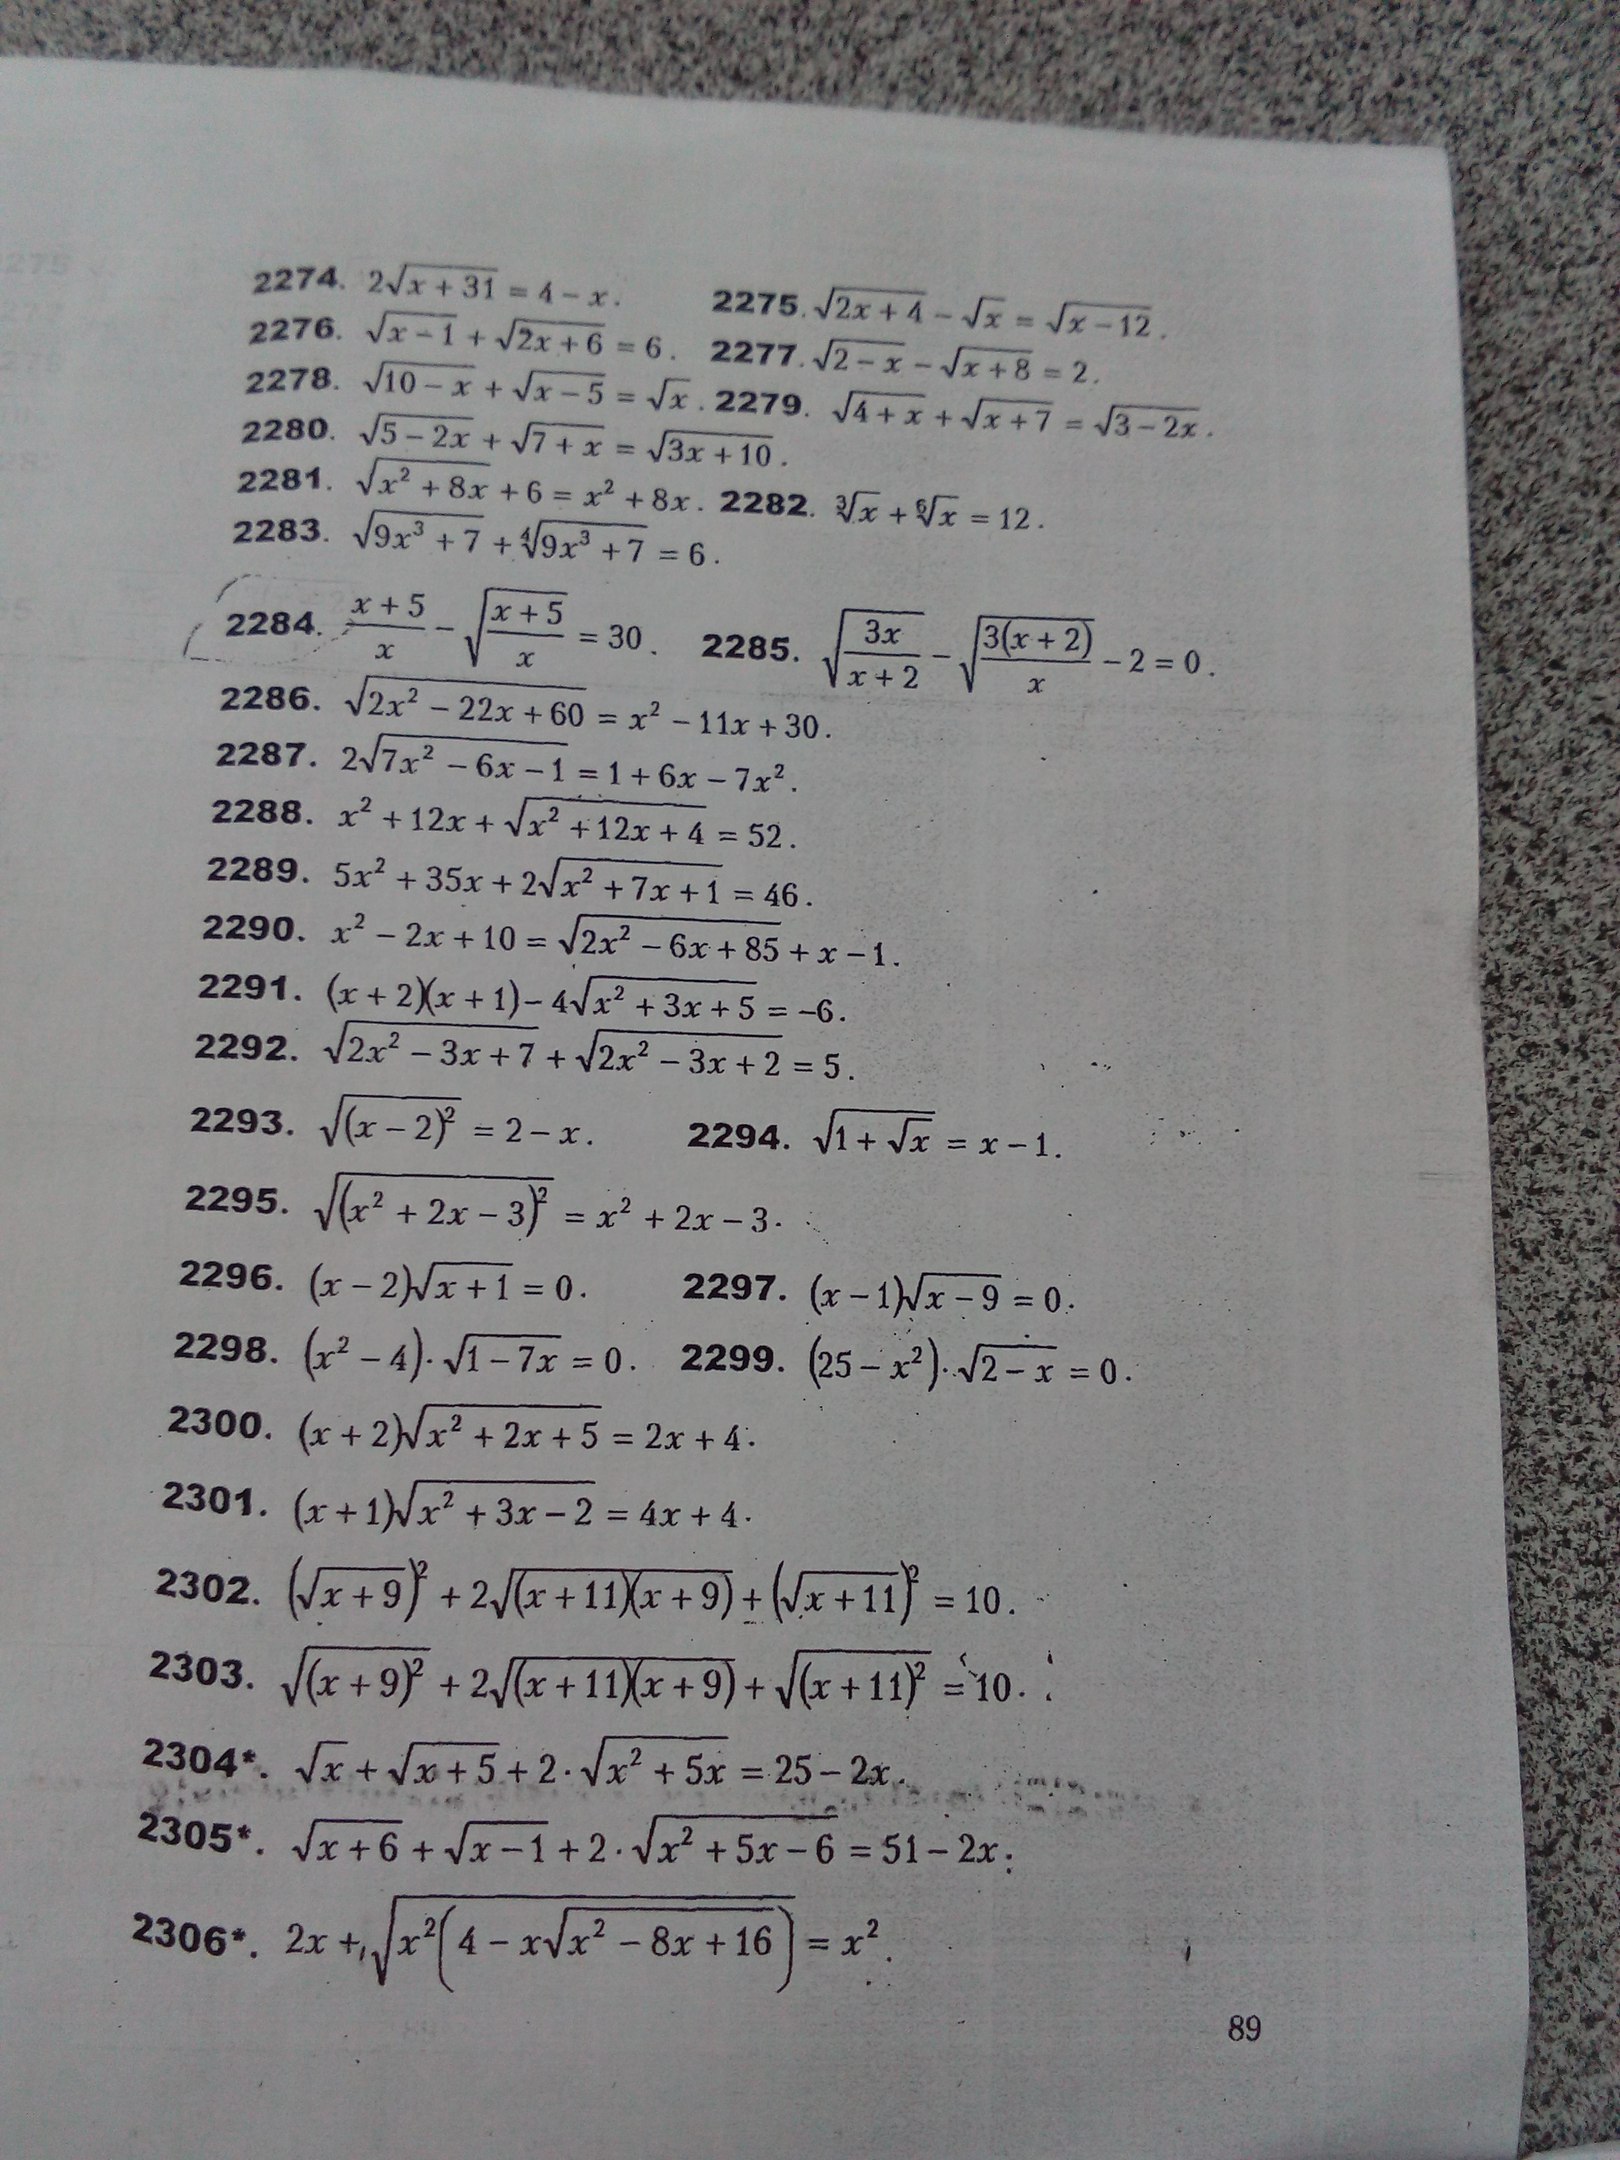 2274. 2√(x + 31) = 4 – x. 2275. √(2x + 4) – √x = √(x – 12).
2276. √(x – 1) + √(2x + 6) = 6. 2277. √(2 – x) – √(x + 8) = 2.
2278. √(10 – x) + √(x – 5) = √x. 2279. √(4 + x) + √(x + 7) = √(3 – 2x).
2280. √(5 – 2x) + √(7 + x) = √(3x + 10).
2281. √(x² + 8x) + 6 = x² + 8x. 2282. ∛x + ⁶√x = 12.
2283. √(9x³ + 7) + ∜(9x³ + 7) = 6.
2284. (x + 5)/x – √((x + 5)/x) = 30. 2285. √(3x/(x + 2)) – √(3(x + 2)/x) – 2 = 0.
2286. √(2x² – 22x + 60) = x² – 11x + 30.
2287. 2√(7x² – 6x – 1) = 1 + 6x – 7x².
2288. x² + 12x + √(x² + 12x + 4) = 52.
2289. 5x² + 35x + 2√(x² + 7x + 1) = 46.
2290. x² – 2x + 10 = √(2x² – 6x + 85) + x – 1.
2291. (x + 2)(x + 1) – 4√(x² + 3x + 5) = –6.
2292. √(2x² – 3x + 7) + √(2x² – 3x + 2) = 5.
2293. √((x – 2)²) = 2 – x. 2294. √(1 + √x) = x – 1.
2295. √((x² + 2x – 3)²) = x² + 2x – 3.
2296. (x – 2)√(x + 1) = 0. 2297. (x – 1)√(x – 9) = 0.
2298. (x² – 4)·√(1 – 7x) = 0. 2299. (25 – x²)·√(2 – x) = 0.
2300. (x + 2)√(x² + 2x + 5) = 2x + 4.
2301. (x + 1)√(x² + 3x – 2) = 4x + 4.
2302. (√(x + 9))² + 2√((x + 11)(x + 9)) + (√(x + 11))² = 10.
2303. √((x + 9)²) + 2√((x + 11)(x + 9)) + √((x + 11)²) = 10.
2304*. √x + √(x + 5) + 2·√(x² + 5x) = 25 – 2x.
2305*. √(x + 6) + √(x – 1) + 2·√(x² + 5x – 6) = 51 – 2x.
2306*. 2x + √(x²(4 – x√(x² – 8x + 16))) = x².
89